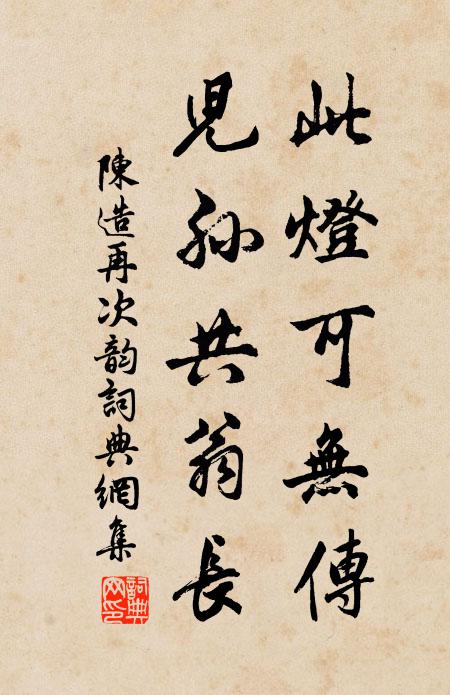 此燈可無傳
兒孫共翁長
陳造再次韵詞典網集